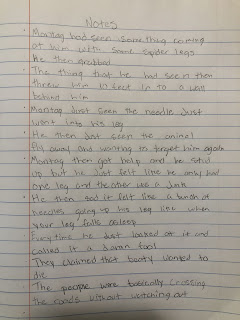 Notes
• Montag had seen something coming
at him with some spider legs
He then grabbed
• The thing that he had seen then
threw him 10 feet in to a wall
behind him
• Montag Just seen the needle Just
went into his leg
• He then Just seen the animal
fly away and wanting to forget him again
• Montag then got help and he stood
up but he Just felt like he only had
one leg and the other was a
• He then said it felt like a bunch of
needles going up his leg like when
your leg falls asleep
• Every time he Just looked at it and
called it a fool
• They claimed that beaty wanted to
die
• The people were basically crossing
the roads without watching out